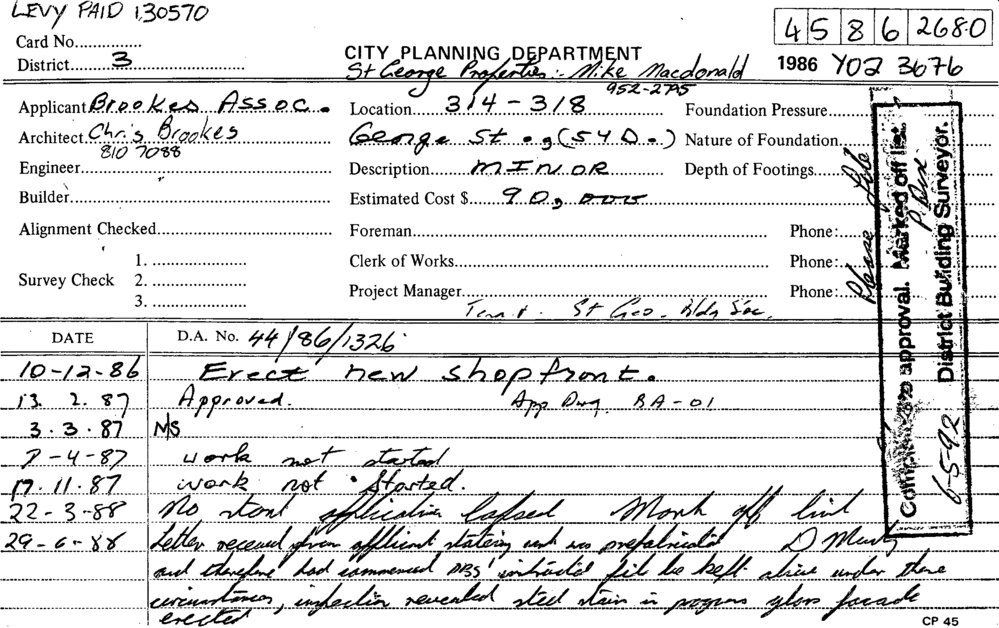 LEVY PAID 130570
Card No.
District 3
CITY PLANNING DEPARTMENT
St George Properties :- Mike Macdonald
952-2795
4 5 8 6 2680
1986 Y02 3676
Applicant Brookes Assoc.
Architect Chris Brookes
810 7088
Engineer
Builder
Alignment Checked
Survey Check
1.
2.
3.
Location 314-318
George St., (SYD.)
Description MINOR
Estimated Cost $ 90,000
Foreman
Clerk of Works
Project Manager
St Geo. Bldg Soc.
Foundation Pressure
Nature of Foundation
Depth of Footings
Phone:
Phone:
Phone:
Please
to approval. Marked off list
6-5-92 District Building Surveyor.
DATE D.A. No. 44/86/1326
10-12-86 Erect new shopfront.
13. 2. 87 Approved. App Dwg. BA-01
3. 3. 87 N/S
7-4-87 work not started
17. 11. 87 work not Started.
22-3-88 No start application lapsed Mark off list
29-6-88 Letter received from applicant stating unit was prefabricated
and therefore had commenced DBS instructed file be kept alive under these
circumstances, inspection revealed steel stair in progress glass facade
erected
CP 45